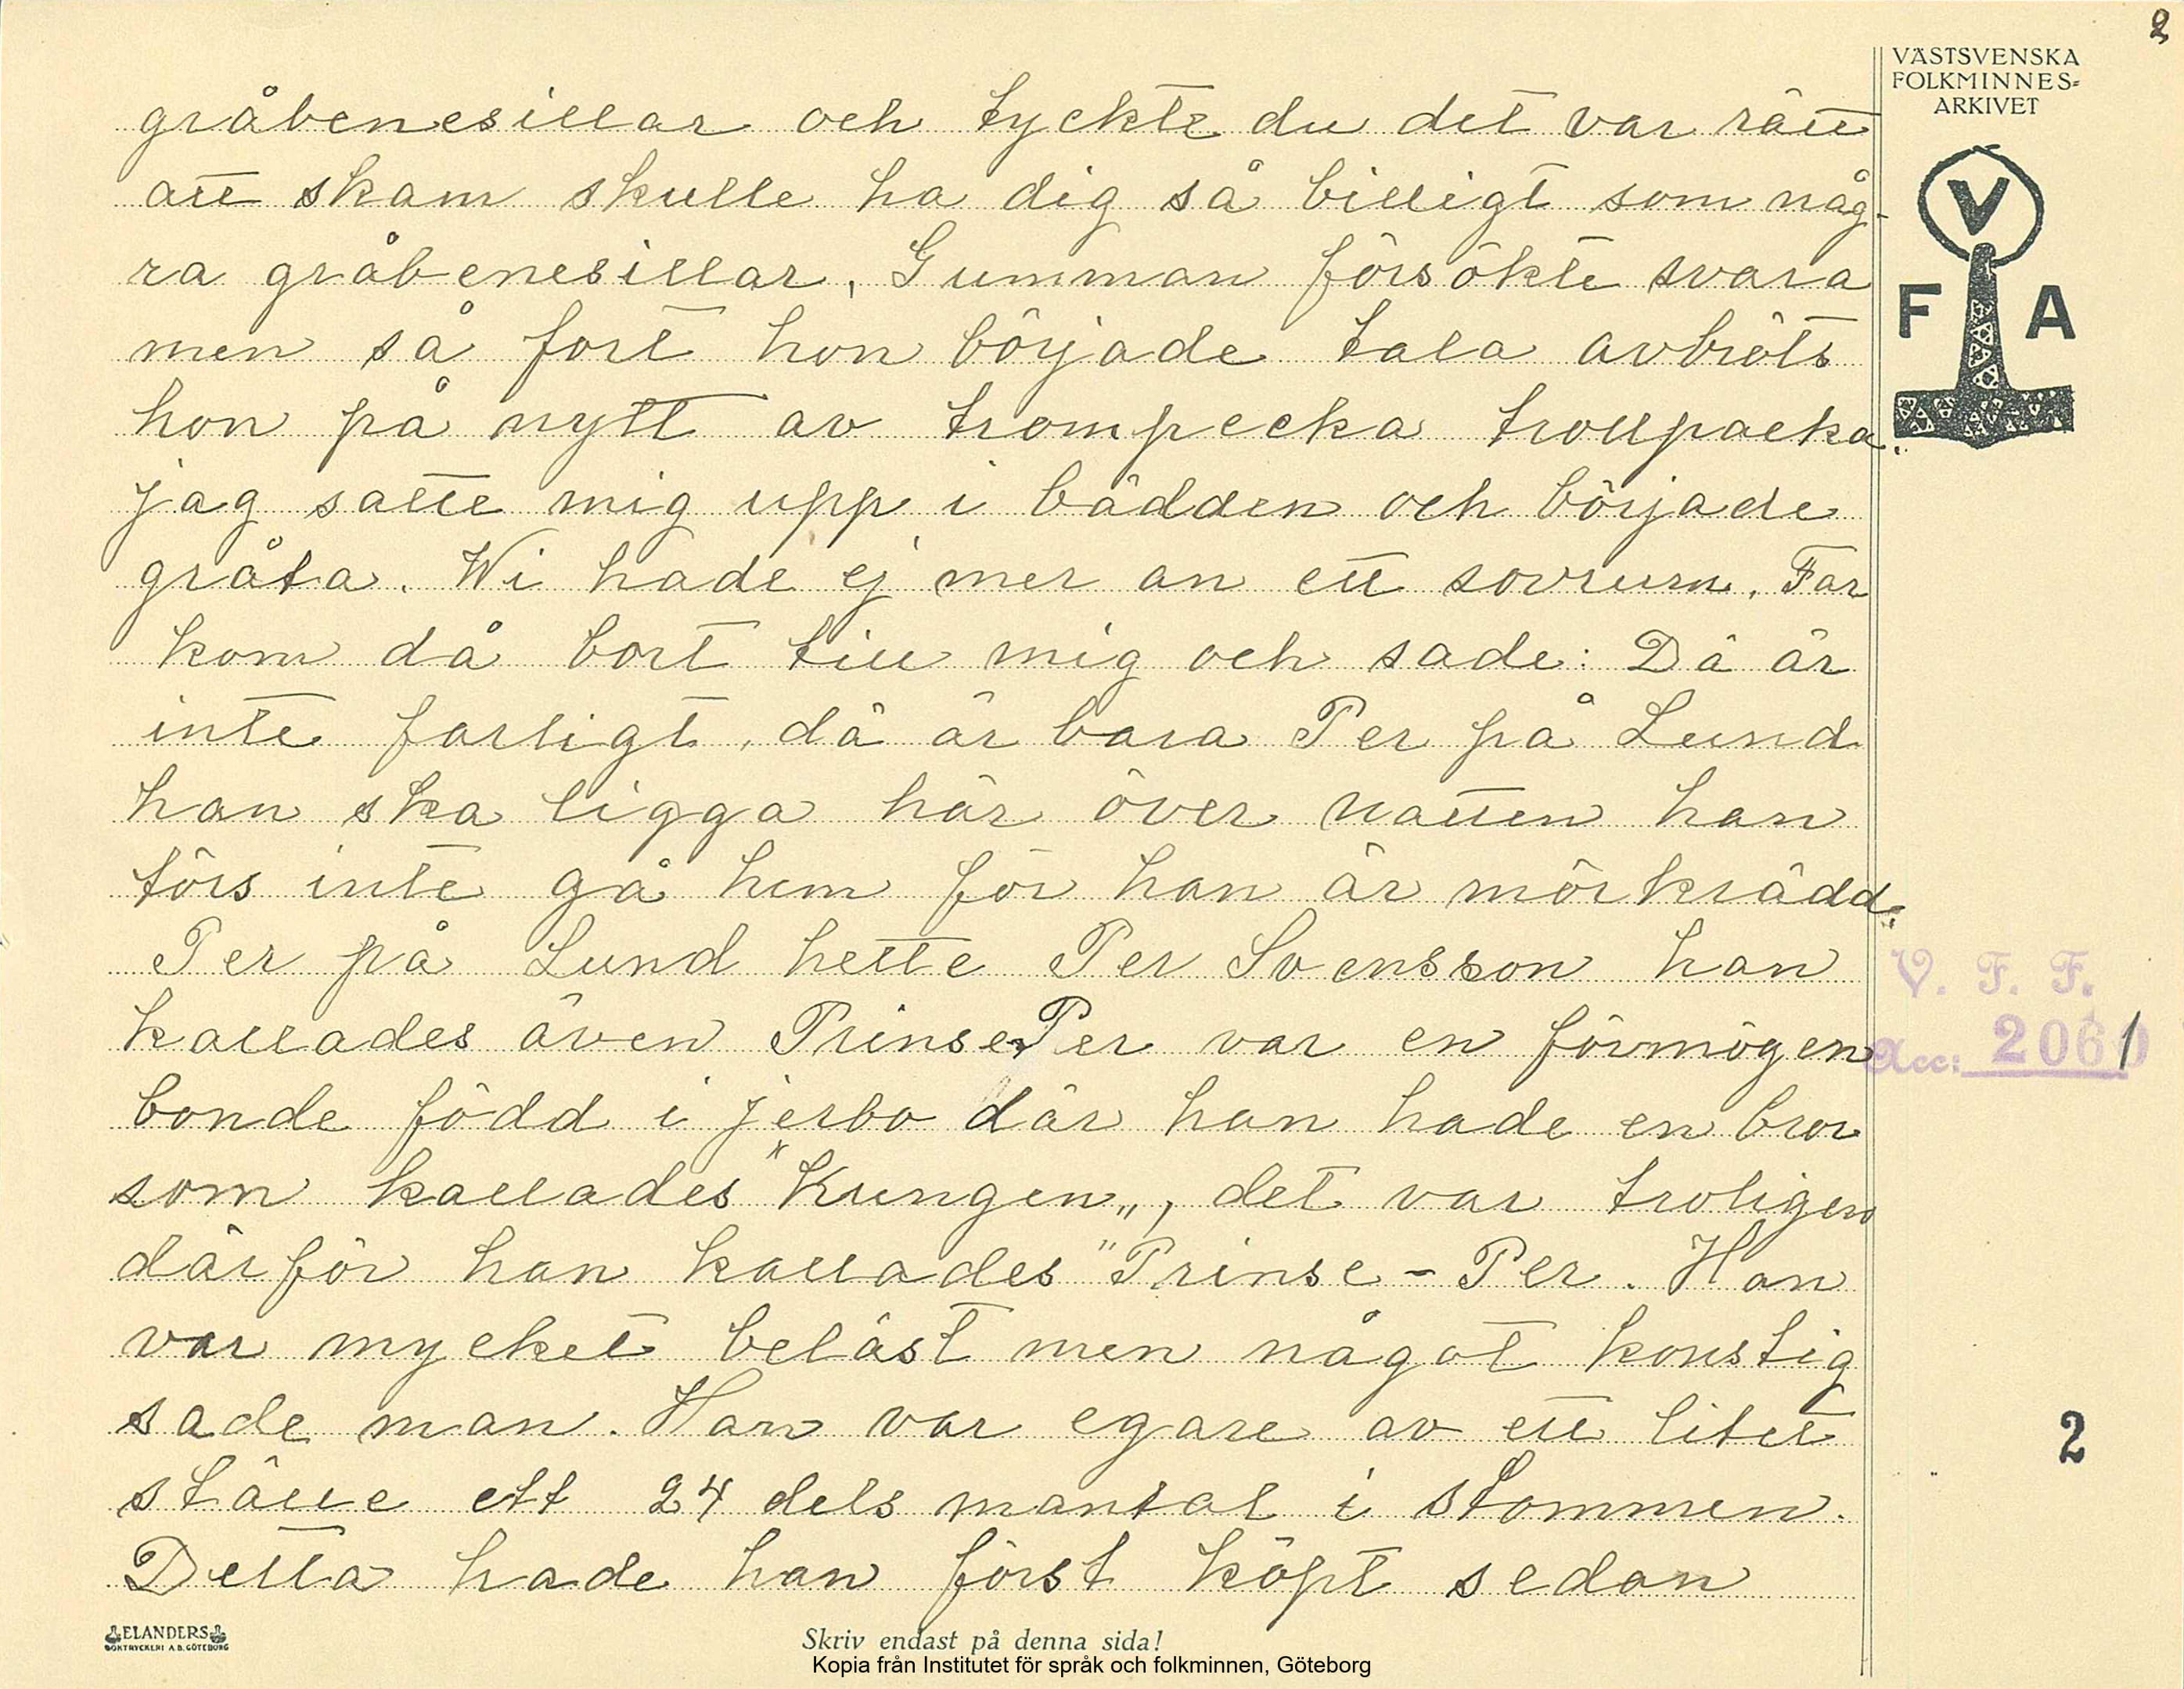 2
VÄSTSVENSKA
FOLKMINNES-
ARKIVET
V
F A
gråbenesillar och tyckte du det var rätt
att skam skulle ha dig så billigt som någ-
ra gråbenesillar. Gumman försökte svara
men så fort hon började tala avbröts
hon på nytt av trompecka trollpacka.
jag satte mig upp i bädden och började
gråta. Wi hade ej mer än ett sovrum. Far
kom då bort till mig och sade: Dä är
inte farligt, dä är bara Per på Lund
han ska ligga här över natten han
törs inte gå hem för han är mörkrädd.
Per på Lund hette Per Svensson han
kallades även Prinse-Per var en förmögen
bonde född i jerbo där han hade en bror
som kallades "Kungen„, det var troligen
därför han kallades "Prinse-Per. Han
var mycket beläst men något konstig
sade man. Han var egare av ett litet
ställe ett 24 dels mantal i Stommen.
Detta hade han först köpt sedan
V. F. F.
Acc: 2061
2
ELANDERS
BOKTRYCKERI A.B. GÖTEBORG
Skriv endast på denna sida!
Kopia från Institutet för språk och folkminnen, Göteborg